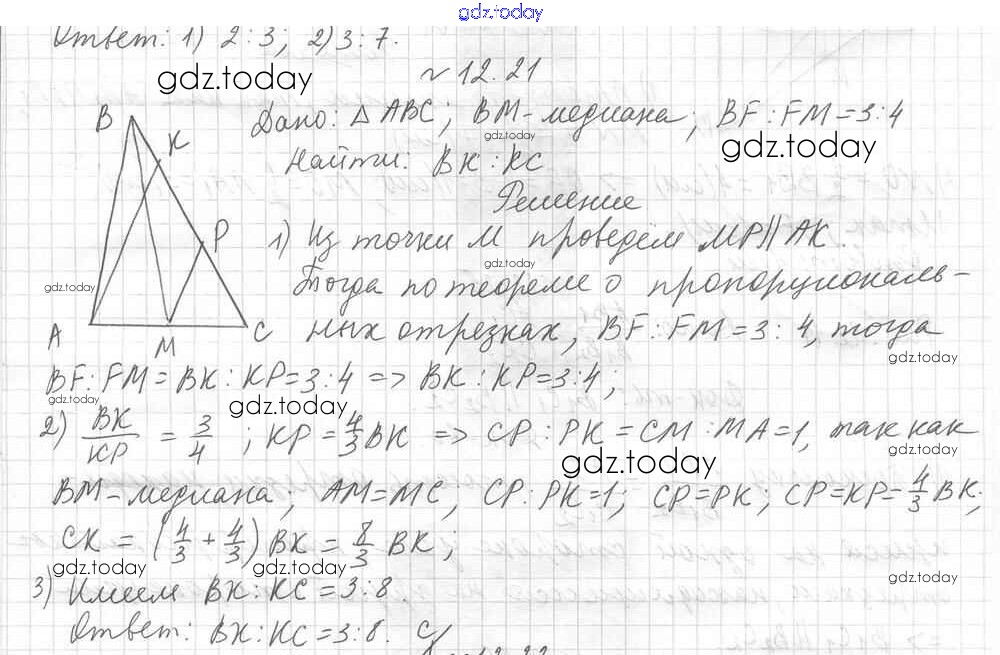 gdz.today
Ответ: 1) 2:3; 2) 3:7.
gdz.today
№ 12.21
Дано: △ ABC; BM - медиана; BF : FM = 3:4
gdz.today
gdz.today
Найти: BK : KC
Решение
B
K
P
A
M
C
gdz.today
1) Из точки M проведём MP || AK.
gdz.today
Тогда по теореме о пропорциональ-
ных отрезках, BF : FM = 3 : 4, тогда
gdz.today
BF : FM = BK : KP = 3:4 => BK : KP = 3:4;
gdz.today
gdz.today
2) BK/KP = 3/4 ; KP = 4/3 BK => CP : PK = CM : MA = 1, так как
gdz.today
gdz.today
BM - медиана; AM = MC, CP : PK = 1; CP = PK; CP = KP = 4/3 BK;
CK = (4/3 + 4/3) BK = 8/3 BK;
gdz.today
gdz.today
gdz.today
3) Имеем BK : KC = 3:8.
Ответ: BK : KC = 3:8.